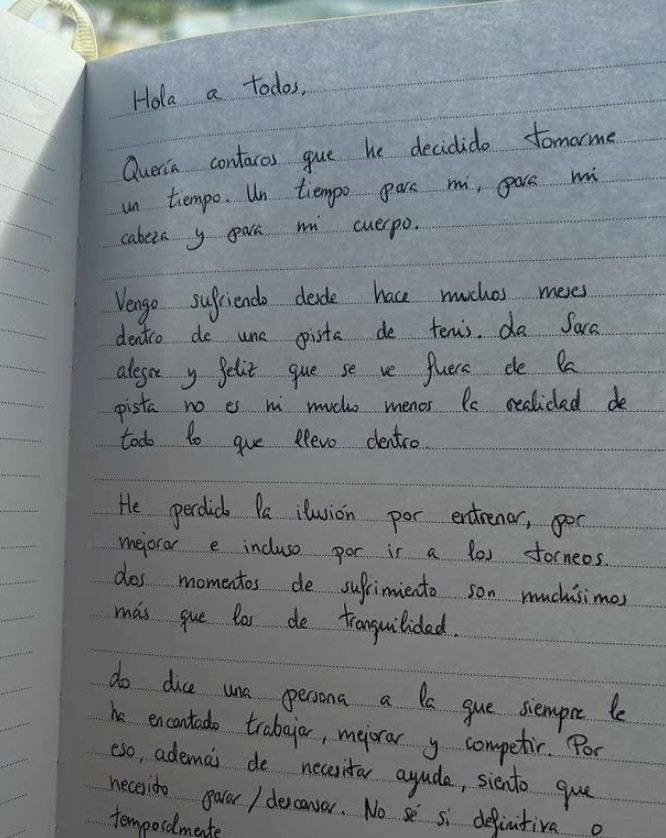 Hola a todos,
Quería contaros que he decidido tomarme
un tiempo. Un tiempo para mi, para mi
cabeza y para mi cuerpo.
Vengo sufriendo desde hace muchos meses
dentro de una pista de tenis. La Sara
alegre y feliz que se ve fuera de la
pista no es ni mucho menos la realidad de
todo lo que llevo dentro.
He perdido la ilusión por entrenar, por
mejorar e incluso por ir a los torneos.
Los momentos de sufrimiento son muchísimos
más que los de tranquilidad.
Lo dice una persona a la que siempre le
ha encantado trabajar, mejorar y competir. Por
eso, además de necesitar ayuda, siento que
necesito parar/descansar. No sé si definitiva o
temporalmente